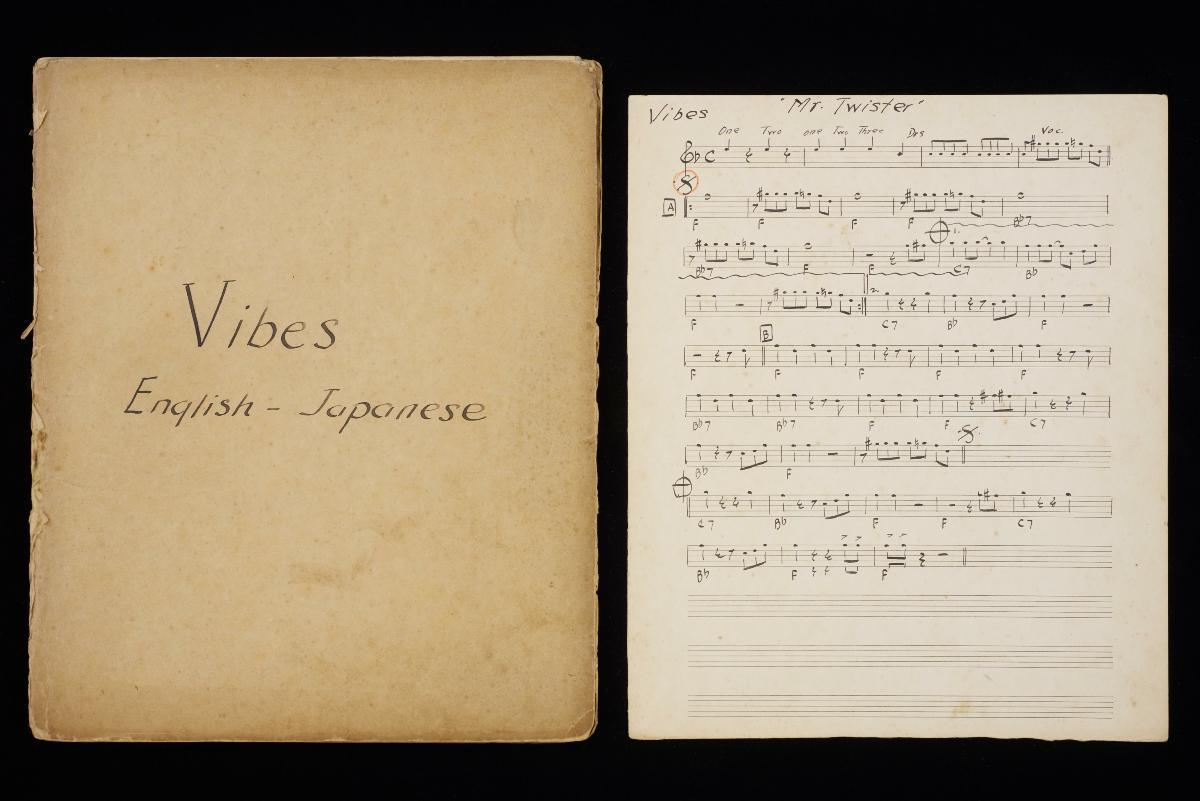 Vibes
English - Japanese
Vibes "Mr. Twister"
One Two one Two Three Drs Voc.
A
F F F F Bb7
1.
Bb7 F F C7 Bb
2.
F C7 Bb F
B
F F F F F
Bb7 Bb7 F F C7
Bb F
C7 Bb F F C7
Bb F F